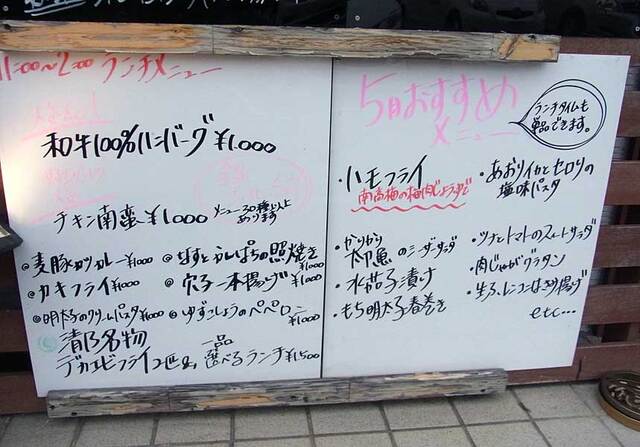 11:00～2:00 ランチメニュー
和牛100%ハンバーグ ¥1.000
チキン南蛮 ¥1000
メニュー30種以上
あります
◎麦豚カツカレー¥1000
◎なすとかんぱちの照焼き
¥1000
◎カキフライ¥1000
◎穴子一本揚げ¥1000
◎明太子のクリームパスタ¥1000
◎ゆずこしょうのペペロン
¥1000
清乃名物 一品
デカエビフライ2匹&選べるランチ¥1500
5月おすすめ
メニュー
ランチタイムも
単品できます。
・ハモフライ
南高梅の梅肉じょうゆで
・あおりイカとセロリの
塩味パスタ
・かりかり
太刀魚のシーザーサラダ
・水茄子漬け
・もち明太子春巻き
・ツナとトマトのスイートサラダ
・肉じゃがグラタン
・生ふ、レンコンはさみ揚げ
etc...